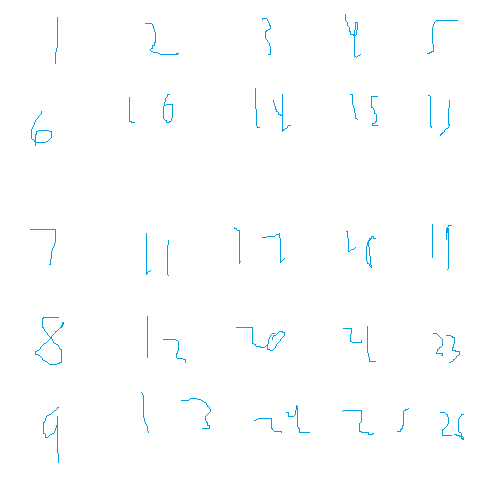 1 2 3 4 5
6 16 14 15
7 11 17 19
8 12 20 21 23
9 13 24 25 26